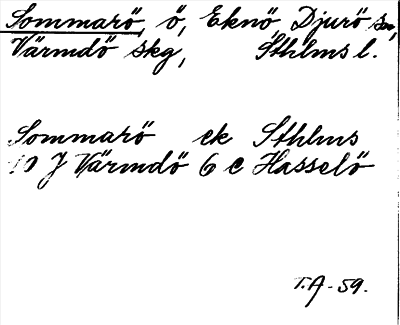 Sommarö, ö, Eknö, Djurö sn,
Värmdö skg, Sthlms l.
Sommarö ek Sthlms
10 J Värmdö 6 c Hasselö
T.A-59.